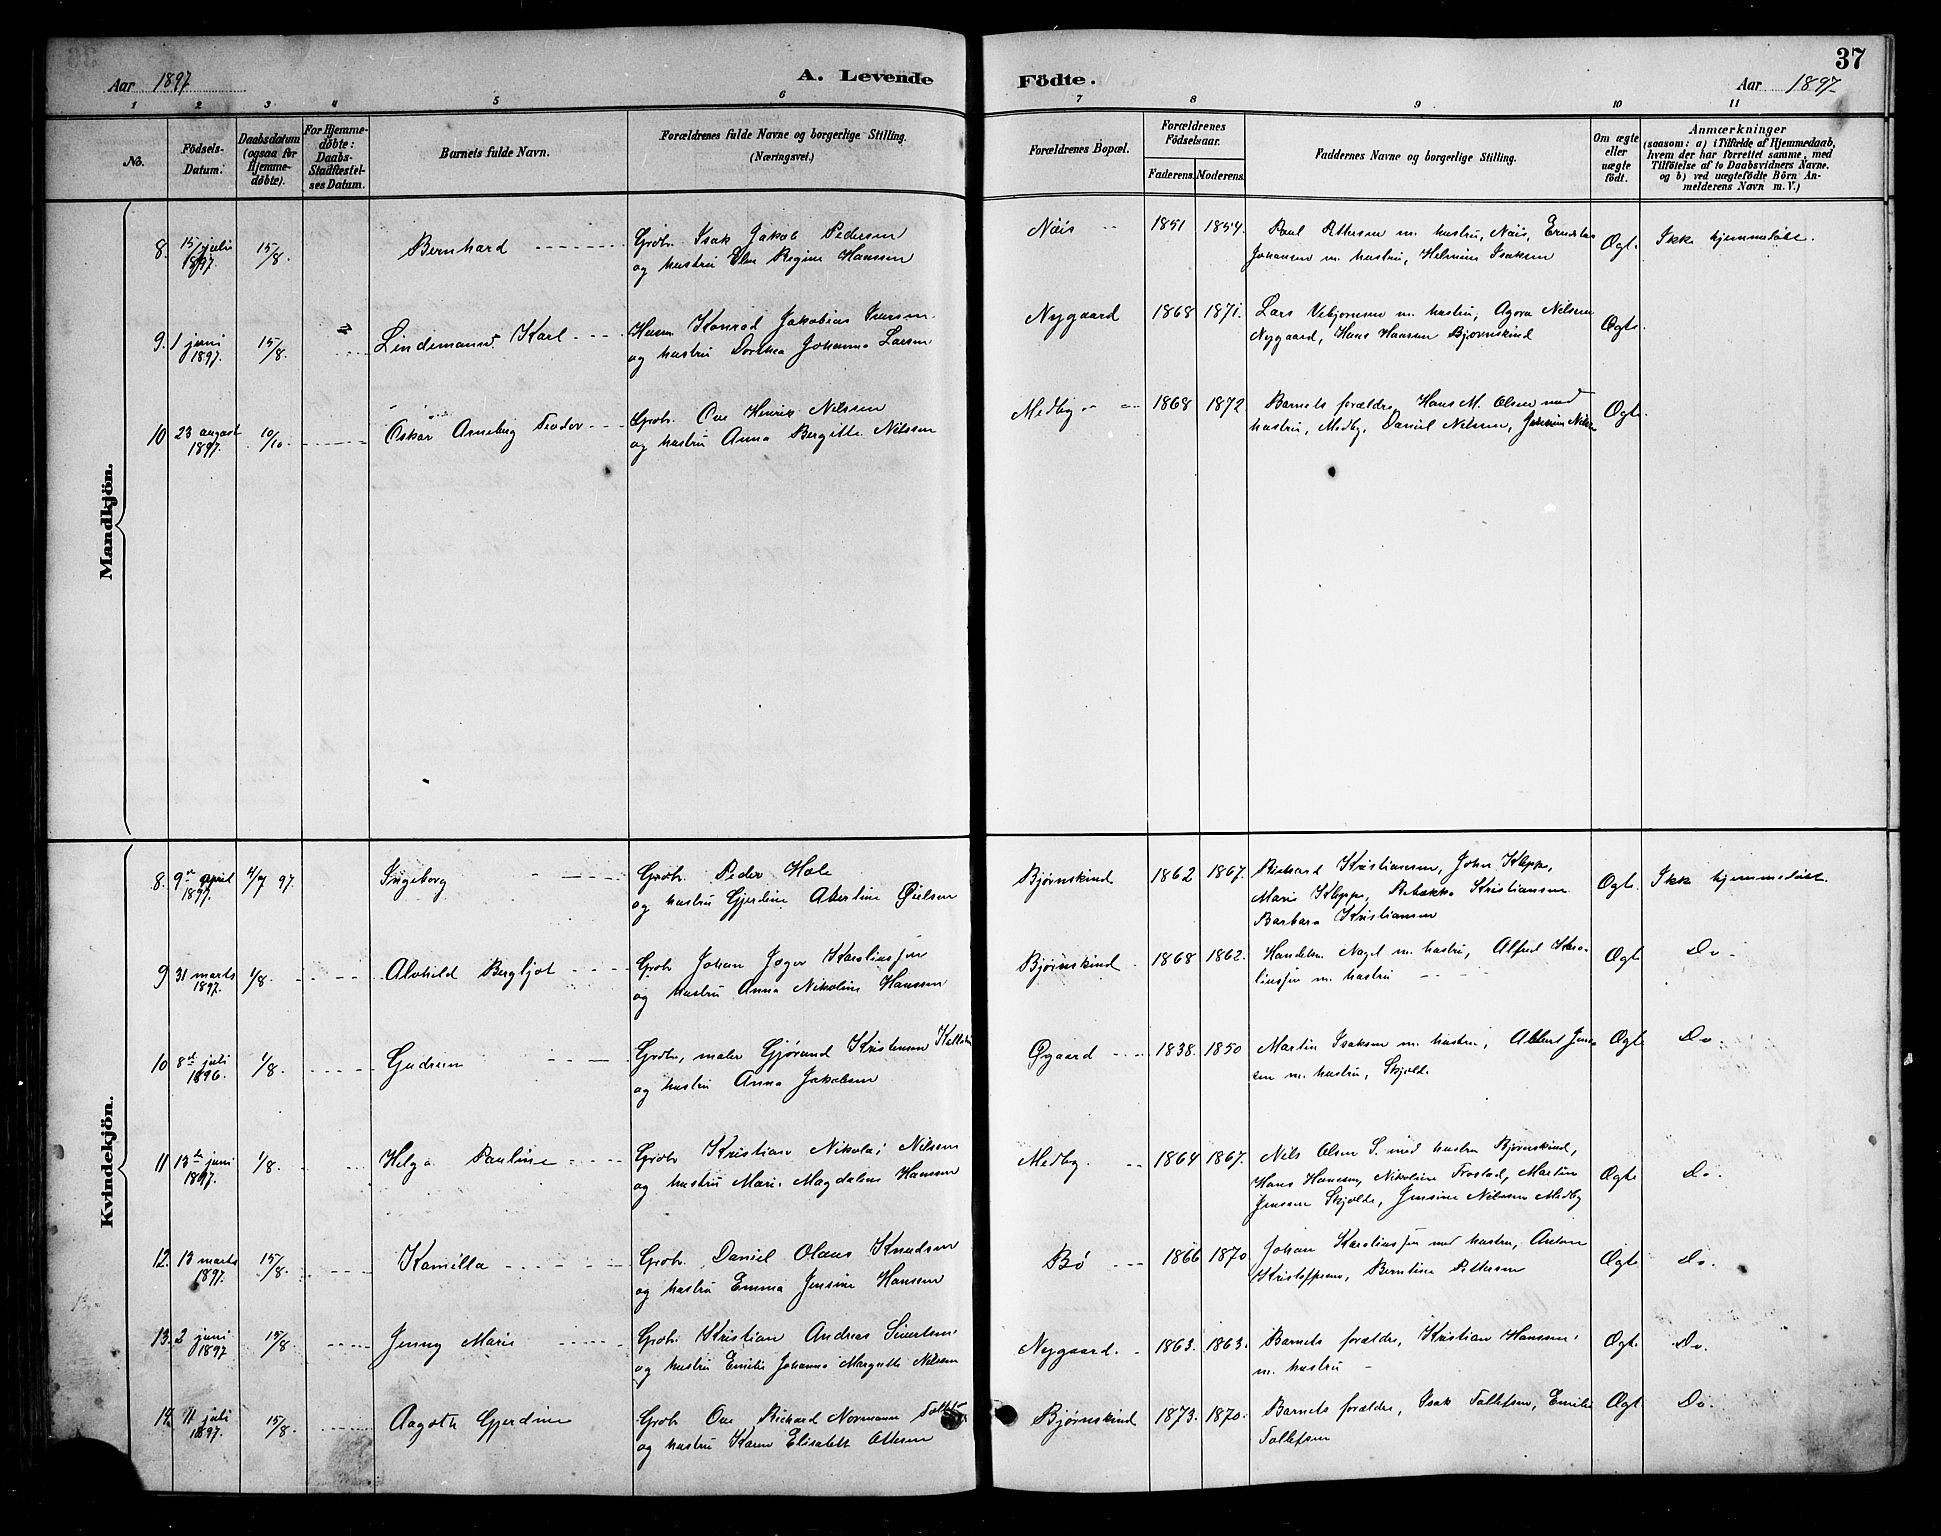 37
Aar 1897
A. Levende
Födte.
Aar 1897
1 2 3 4 5 6 7 8 9 10 11
No.
Födsels-
Datum.
Daabsdatum
(ogsaa for
Hjemme-
døbte).
For Hjemme-
døbte:
Daabs-
Stadfæstel-
ses Datum.
Barnets fulde Navn.
Forældrenes fulde Navne og borgerlige Stilling.
(Næringsvei.)
Forældrenes Bopæl.
Forældrenes
Födselsaar.
Faderens. Moderens.
Faddernes Navne og borgerlige Stilling.
Om ægte
eller
uægte
födt.
Anmærkninger
(saasom: a) i Tilfælde af Hjemmedaab,
hvem der har forrettet samme, med
Tilföielse af to Daabsvidners Navne.
og b) ved uægtefödte Börn An-
melderens Navn m. V.)
Mandkjön.
8. 15/ juli
1897. 15/8. Bernhard
Grdbr. Isak Jakob Pedersen
og hustru Else Regine Hanssen
Nøis 1851 1854.
Paul Pettersen m. hustru, Nøis,
Johansen m. hustru, Helmine Isaksen
Ægt. Ikke hjemmedøbt.
9. 1 juni
1897. 15/8. Karl
Konrad Jakobias Iversen
og hustru Dorthea Johanna Larsen
Nygaard 1868 1871.
Lars Vebjørnsen m. hustru, Nilsen
Nygaard, Hans Hansen Bjørnskind
Ægte.
10 23 august
1897. 10/10. Oskar Arneberg Teodor
Grdbr. Ove Henrik Nilssen
og hustru Anna Bergitte Nilssen
Medby 1868 1872
Barnets forældre, Hans M. Olsen med
hustru, Medby, Daniel Nilssen,
Ægte
Kvindekjön.
8. 9de april
1897. 4/7 97. Ingeborg
Grdbr. Peder Hole
og hustru Gjerdine Albertine
Bjørnskind 1862 1867.
Richard Kristiansen, John Kleppe,
Marie Kleppe, Rebekka Kristiansen
Barbara Kristiansen
Ægte. Ikke hjemmedøbt.
9 31 marts
1897. 1/8. Alvhild Bergljot
Grdbr. Johan Jøger Karoliussen
og hustru Anna Nikoline Hanssen
Bjørnskind 1868 1862.
Handelsm. m. hustru, Alfred Karo-
liussen m. hustru
Ægte Do
10 8de juli
1896. 1/8. Gudrun
Grdbr, maler Gjørund Kristensen
og hustru Anna Jakobsen
Øgaard 1838. 1850
Martin Isaksen m. hustru, Albert Jens-
sen m. hustru, Skjold.
Ægte Do
11 13de juni
1897. 1/8. Helga Pauline
Grdbr Kristian Nikolai Nilssen
og hustru Marie Magdalene Hanssen
Medby. 1864 1867.
Nils Olsen S. med hustru Bjørnskind,
Hans Hanssen, Nikoline Frostad, Martin
Jenssen Skjolde, Jensine Nilssen Medby
Ægte Do.
12. 13 marts
1897. 15/8. Kamilla
Grdbr. Daniel Olaus Knudsen
og hustru Emma Jensine Hanssen
Bø 1866 1870
Johan Karoliussen med hustru, Anton
Kristoffersen, Berntine Pettersen
Ægte Do.
13. 2 juni
1897 15/8. Jenny Marie
Grdbr Kristian Andreas Sivertsen
og hustru Emilie Johanna Margrethe Nilsen
Nygaard. 1863. 1863.
Barnets forældre, Kristian Hanssen
m. hustru
Ægte Do.
14. 11 juli
1897. 15/8. Aagoth Gjerdine
Grdbr Ove Richard Normann
og hustru Karen Elisabeth Ottesen
Bjørnskind 1873. 1870.
Barnets forældre, Isak Tollefsen, Emilie
Tollefsen
Ægt. Do.